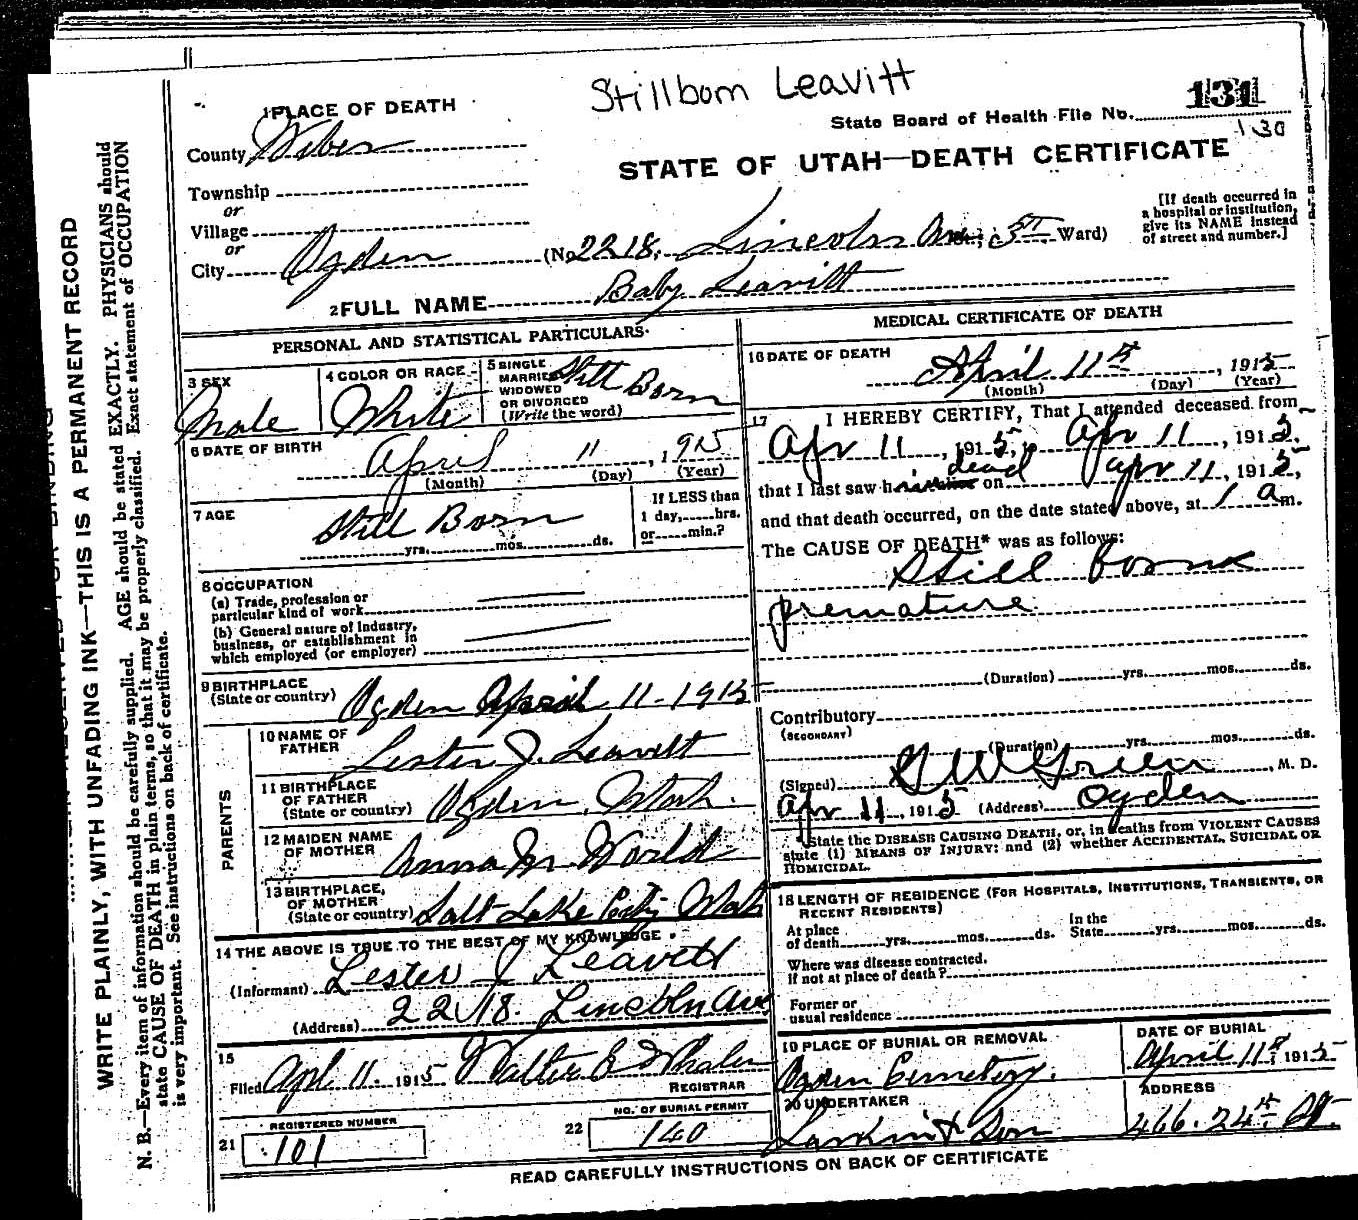 Stillborn Leavitt
131
State Board of Health File No.
130
1 PLACE OF DEATH
County Weber
STATE OF UTAH—DEATH CERTIFICATE
Township
or
Village
or
City Ogden (No. 2218. Lincoln Ave; 5th Ward)
[If death occurred in a hospital or institution, give its NAME instead of street and number.]
2 FULL NAME Baby Leavitt
PERSONAL AND STATISTICAL PARTICULARS
3 SEX Male
4 COLOR OR RACE White
5 SINGLE MARRIED WIDOWED OR DIVORCED (Write the word) Still Born
6 DATE OF BIRTH April 11, 1915
(Month) (Day) (Year)
7 AGE Still Born
yrs. mos. ds.
If LESS than
1 day, hrs.
or min.?
8 OCCUPATION
(a) Trade, profession or
particular kind of work
(b) General nature of industry,
business, or establishment in
which employed (or employer)
9 BIRTHPLACE
(State or country) Ogden April 11-1915
PARENTS
10 NAME OF FATHER Lester J. Leavitt
11 BIRTHPLACE OF FATHER (State or country) Ogden, Utah.
12 MAIDEN NAME OF MOTHER Anna M. World
13 BIRTHPLACE, OF MOTHER (State or country) Salt Lake City Utah
14 THE ABOVE IS TRUE TO THE BEST OF MY KNOWLEDGE
(Informant) Lester J Leavitt
(Address) 2218. Lincoln Ave
15
Filed Apl 11. 1915 Walter E Whalen
REGISTRAR
21 REGISTERED NUMBER 101
22 NO. OF BURIAL PERMIT 140
MEDICAL CERTIFICATE OF DEATH
16 DATE OF DEATH April 11th, 1915
(Month) (Day) (Year)
17 I HEREBY CERTIFY, That I attended deceased from
Apr 11, 1915, Apr 11, 1915,
that I last saw h dead on apr 11, 1915,
and that death occurred, on the date stated above, at 1 a m.
The CAUSE OF DEATH* was as follows:
Still born
premature
(Duration) yrs. mos. ds.
Contributory
(SECONDARY)
(Duration) yrs. mos. ds.
(Signed) G W Green, M. D.
Apr 11, 1915 (Address) Ogden
*State the DISEASE CAUSING DEATH, or, in deaths from VIOLENT CAUSES
state (1) MEANS OF INJURY; and (2) whether ACCIDENTAL, SUICIDAL OR
HOMICIDAL.
18 LENGTH OF RESIDENCE (FOR HOSPITALS, INSTITUTIONS, TRANSIENTS, OR
RECENT RESIDENTS)
At place of death yrs. mos. ds. In the State yrs. mos. ds.
Where was disease contracted,
if not at place of death?
Former or
usual residence
19 PLACE OF BURIAL OR REMOVAL Ogden Cemetery.
DATE OF BURIAL April 11th, 1915
20 UNDERTAKER Larkin & Son
ADDRESS 466. 24th St.
READ CAREFULLY INSTRUCTIONS ON BACK OF CERTIFICATE
WRITE PLAINLY, WITH UNFADING INK—THIS IS A PERMANENT RECORD
N. B.—Every item of information should be carefully supplied. AGE should be stated EXACTLY. PHYSICIANS should
state CAUSE OF DEATH in plain terms, so that it may be properly classified. Exact statement of OCCUPATION
is very important. See instructions on back of certificate.